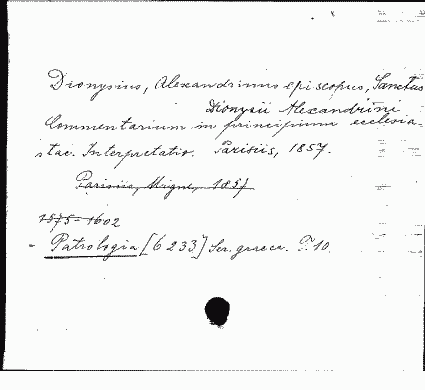 Dionysius, Alexandrinus episcopus, Sanctus
Dionysii Alexandrini
Commentarium in principium ecclesia-
stae. Interpretatio. Parisiis, 1857.
Parisiis, Migne, 1857
1575-1602
- Patrologia [6233] Ser. graeca. T. 10.